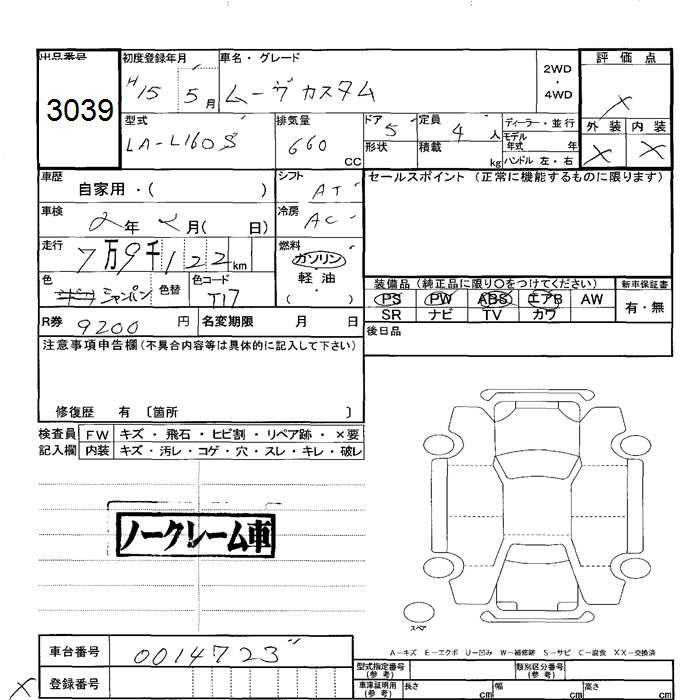 出品番号
3039
初度登録年月
H15 5月
車名・グレード
ムーヴ カスタム
2WD
・
4WD
評価点
×
外装 内装
× ×
型式
LA-L160S
排気量
660 CC
ドア 5
形状
定員 4 人
積載 kg
ディーラー・並行
モデル年式 年
ハンドル 左・右
車歴
自家用・( )
シフト
AT
車検
2年2月( 日)
冷房
AC
走行
7万9千122km
燃料
ガソリン
軽油
( )
色
シャンパン
色替
色コード
T17
R券
9200 円
名変期限 月 日
セールスポイント (正常に機能するものに限ります)
装備品(純正品に限り○をつけてください)
新車保証書
PS PW ABS エアB AW
SR ナビ TV カワ
有・無
後日品
注意事項申告欄(不具合内容等は具体的に記入して下さい)
修復歴 有 〔箇所 〕
検査員 FW キズ・飛石・ヒビ割・リペア跡・×要
記入欄 内装 キズ・汚レ・コゲ・穴・スレ・キレ・破レ
ノークレーム車
スペア
A-キズ E-エクボ U-凹み W-補修跡 S-サビ C-腐食 XX-交換済
車台番号
0014723
登録番号
×
型式指定番号(参考)
類別区分番号(参考)
車庫証明用(参考)
長さ cm
幅 cm
高さ cm